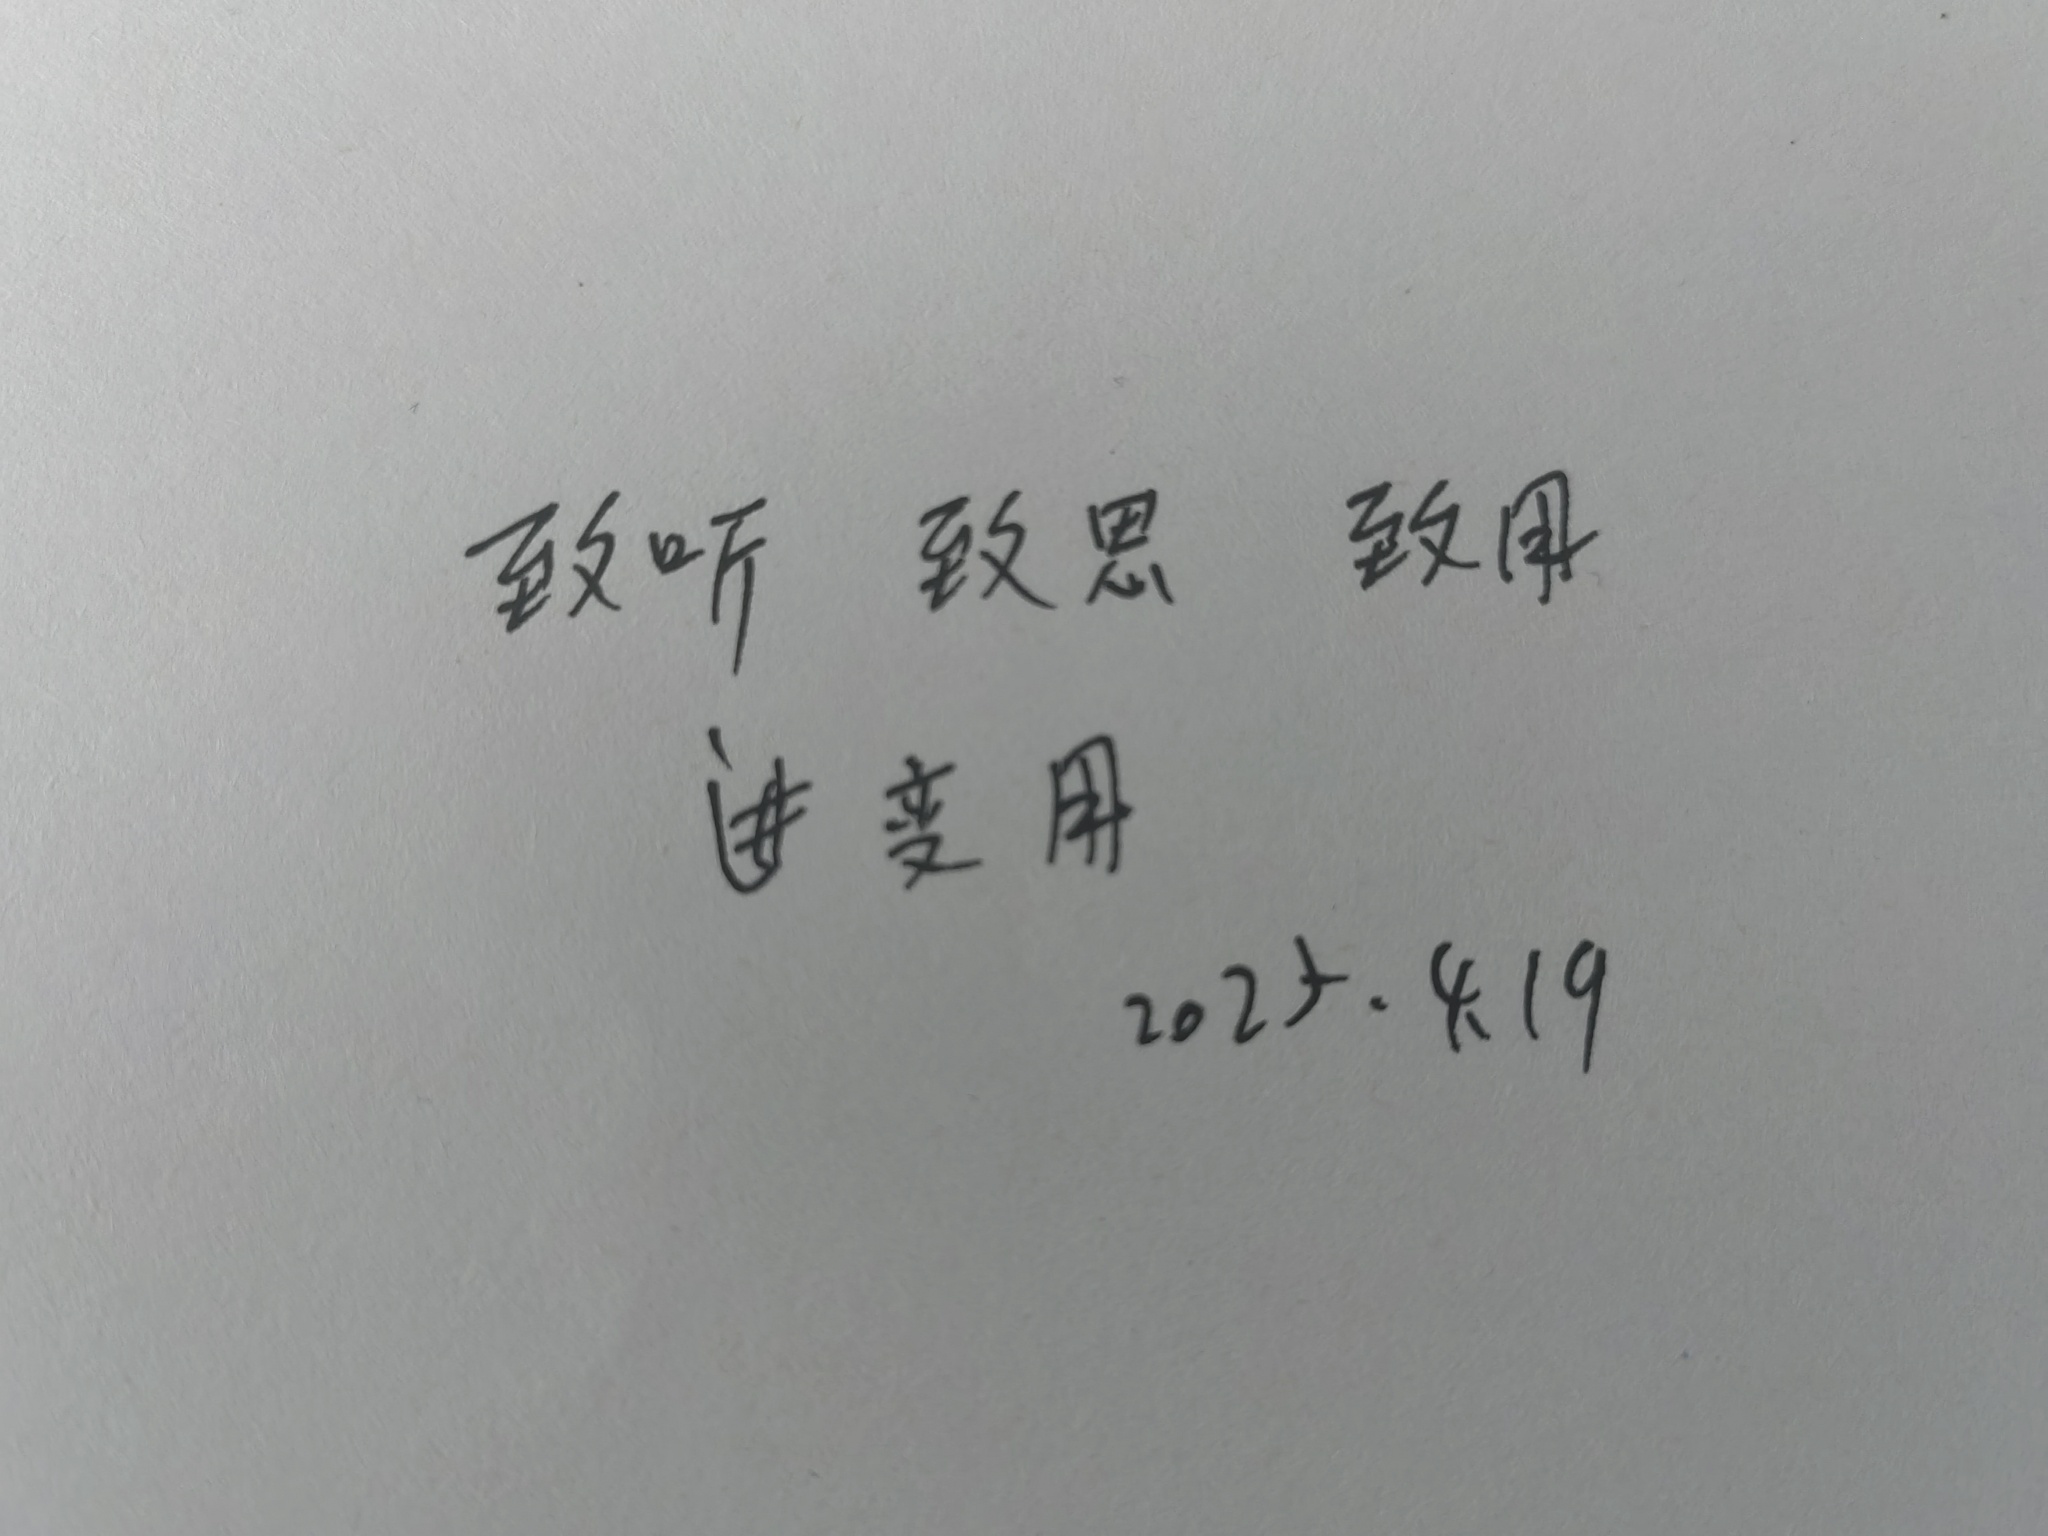 致听 致思 致用
进变用
2025.4.19